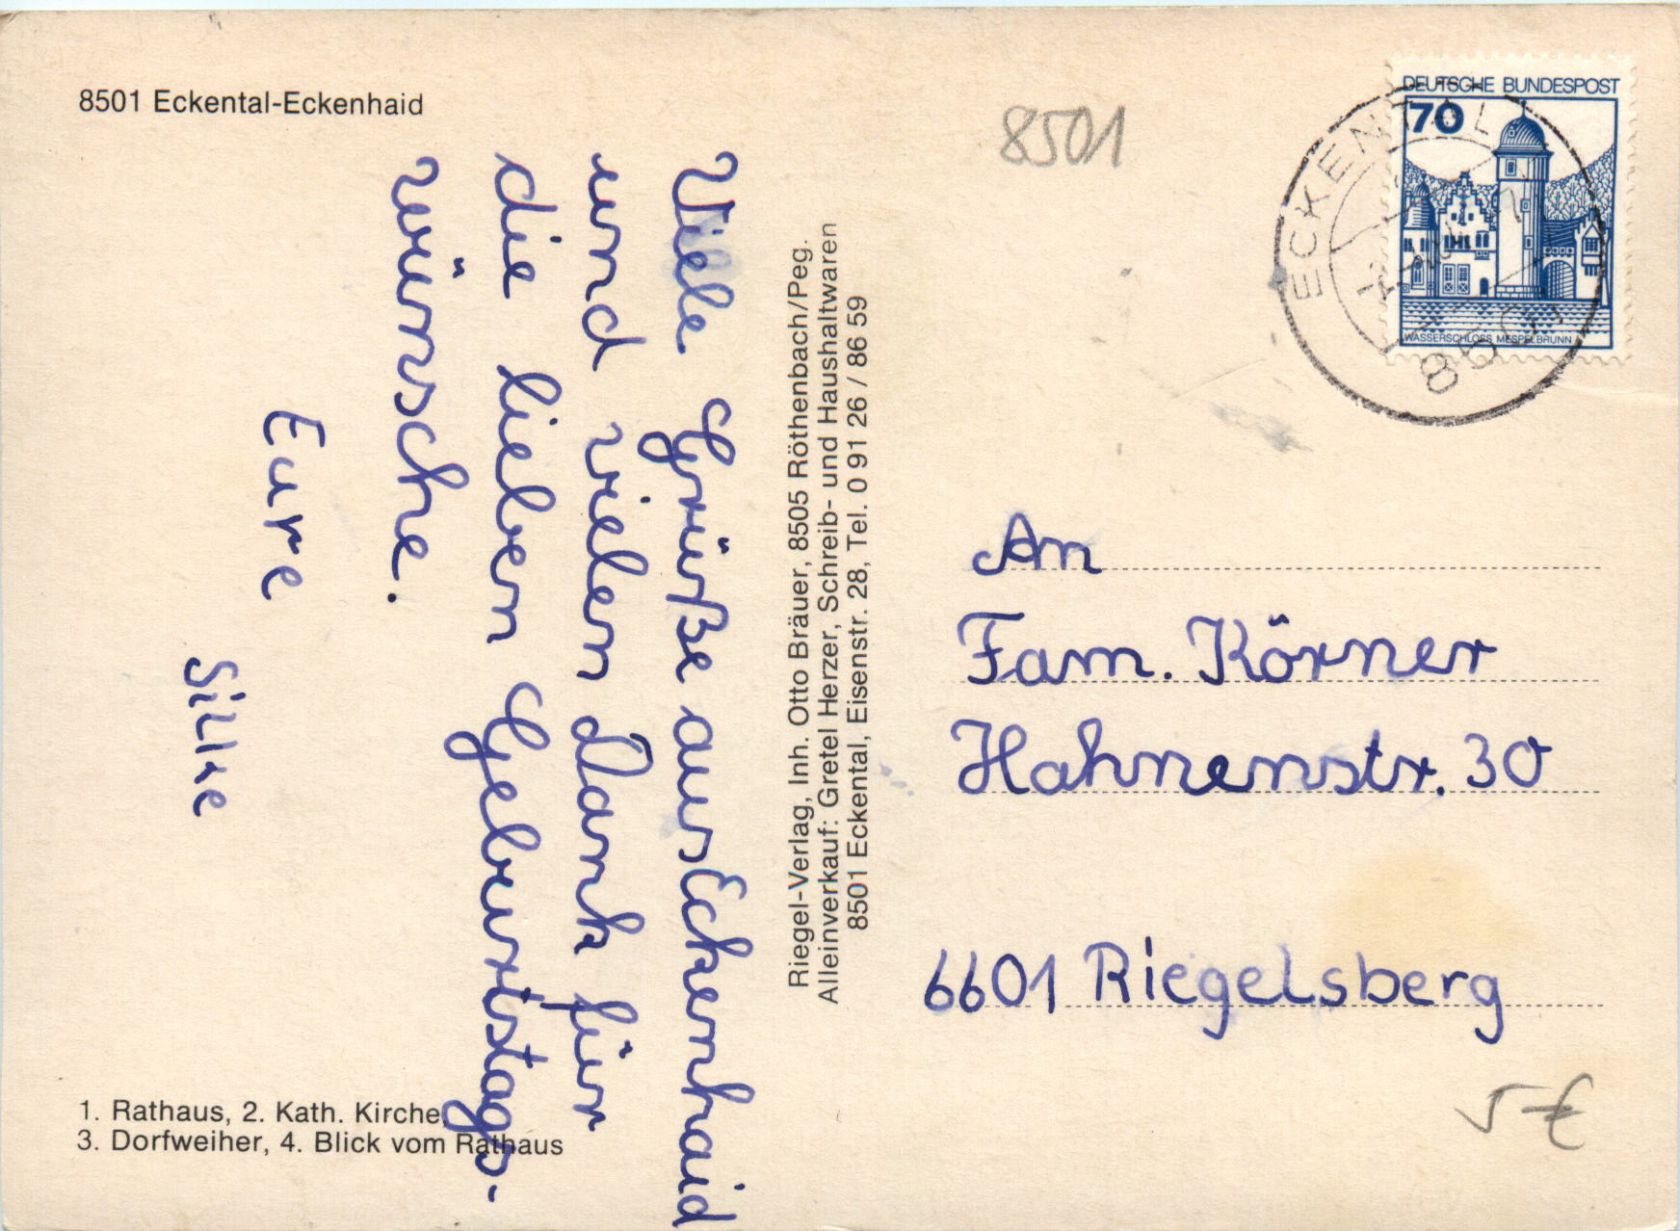 8501 Eckental-Eckenhaid
Viele Grüße aus Eckenhaid
und vielen Dank für
die lieben Geburtstags-
wünsche.
Eure
Silke
1. Rathaus, 2. Kath. Kirche
3. Dorfweiher, 4. Blick vom Rathaus
Riegel-Verlag, Inh. Otto Bräuer, 8505 Röthenbach/Peg.
Alleinverkauf: Gretel Herzer, Schreib- und Haushaltwaren
8501 Eckental, Eisenstr. 28, Tel. 0 91 26 / 86 59
8501
DEUTSCHE BUNDESPOST
70
WASSERSCHLOSS MESPELBRUNN
ECKENTAL
8501
An
Fam. Körner
Hahnenstr. 30
6601 Riegelsberg
5 €